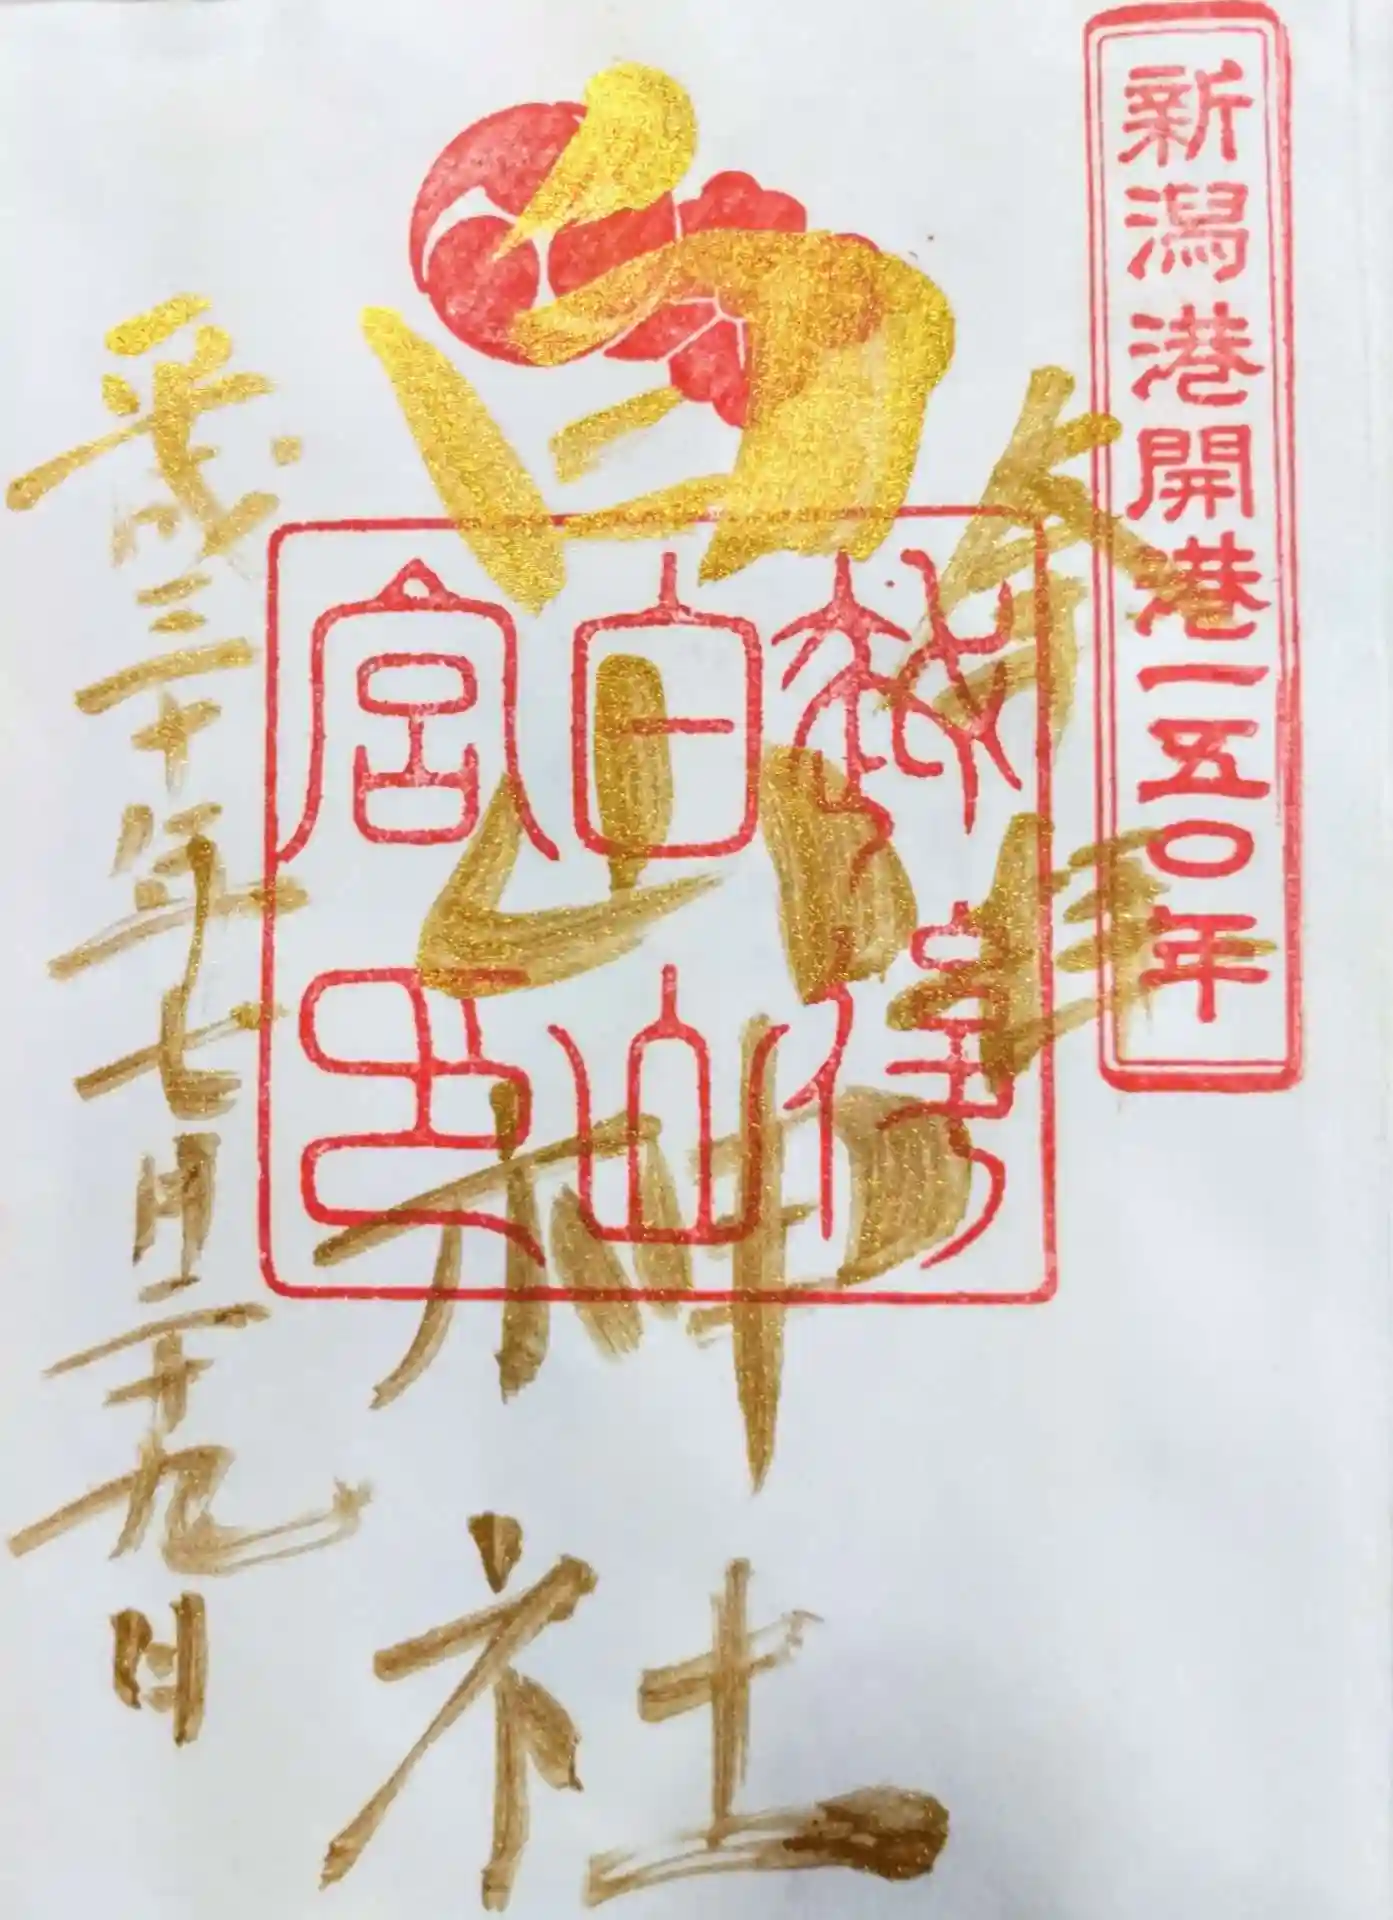 新潟港開港一五〇年
奉拝
白山神社
白山
宮印
平成三十年七月二十九日